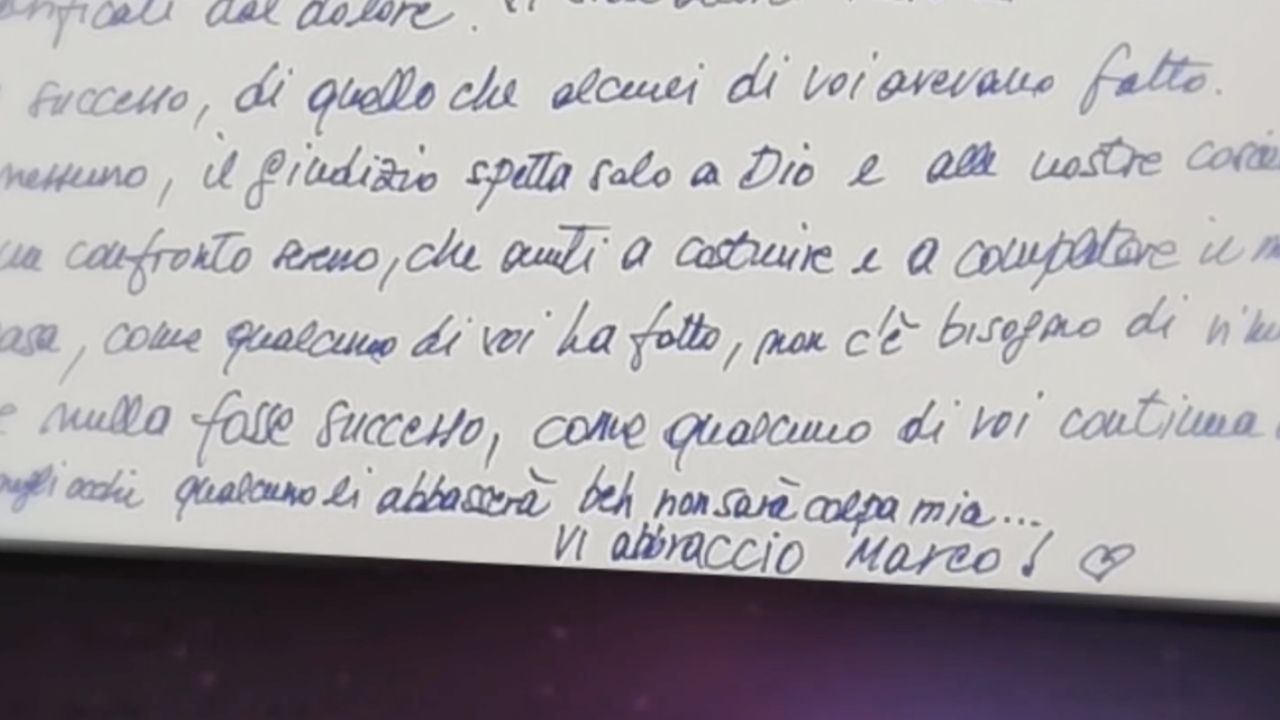 dal dolore.
successo, di quello che alcuni di voi avevano fatto.
nessuno, il giudizio spetta solo a Dio e alle nostre
confronto sereno, che aiuti a costruire e a compatare il
, come qualcuno di voi ha fatto, non c'è bisogno di
e nulla fosse successo, come qualcuno di voi continua
occhi qualcuno li abbasserà beh non sarà colpa mia...
Vi abbraccio Marco! ♡